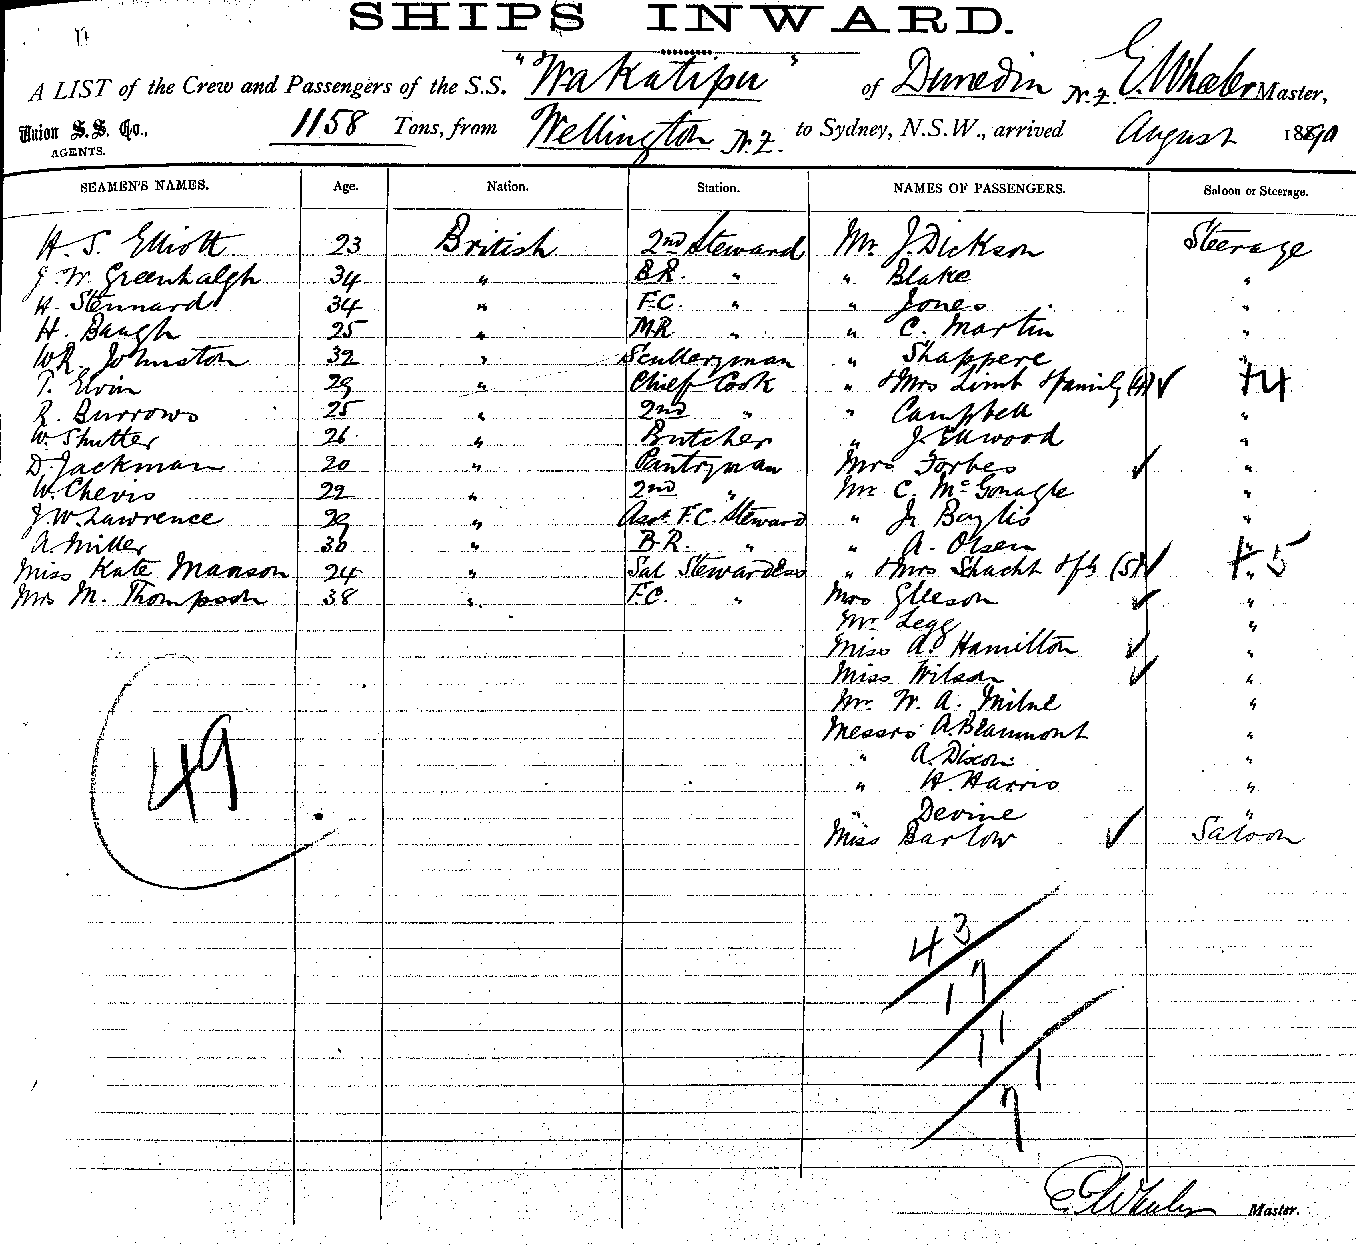 SHIPS INWARD.
A LIST of the Crew and Passengers of the S.S. "Wakatipu" of Dunedin N.Z. E. Wheeler Master,
Union S.S. Co., 1158 Tons, from Wellington N.Z. to Sydney, N.S.W., arrived August 1890
AGENTS.
SEAMEN'S NAMES. Age. Nation. Station. NAMES OF PASSENGERS. Saloon or Steerage.
H. S. Elliott 23 British 2nd Steward Mr. J. Dickson Steerage
J. W. Greenhalgh 34 " B.R. " " Blake "
H. Stennard 34 " F.C. " " Jones "
H. Baugh 25 " M.R " " C. Martin "
W.R. Johnston 32 " Scullaryman " Shappere "
T. Elvin 29 " Chief Cook " & Mrs Limb & family (4) ✓ +4
R. Burrows 25 " 2nd " " Campbell "
W. Shutter 26 " Butcher " J. Ellwood "
D. Jackman 20 " Pantryman Mrs Forbes ✓ "
W. Chevis 22 " 2nd " Mr. C. McGonagle "
J. W. Lawrence 29 " Asst. F.C. Steward " J. Baylis "
A. Miller 30 " B.R. " " A. Olsen "
Miss Kate Manson 24 " Sal Stewardess " & Mrs Schacht & f'y (5) ✓ + 5
Mrs M. Thompson 38 " F.C. " Mrs Gleeson ✓ "
Mr. Legg "
Miss A. Hamilton ✓ "
Miss Wilson ✓ "
Mr. W. A. Milne "
Messrs A. Beaumont "
" A. Dixon "
" H. Harris "
" Devine "
Miss Barlow ✓ Saloon
49
43
17
11
1
7
E. Wheeler Master.